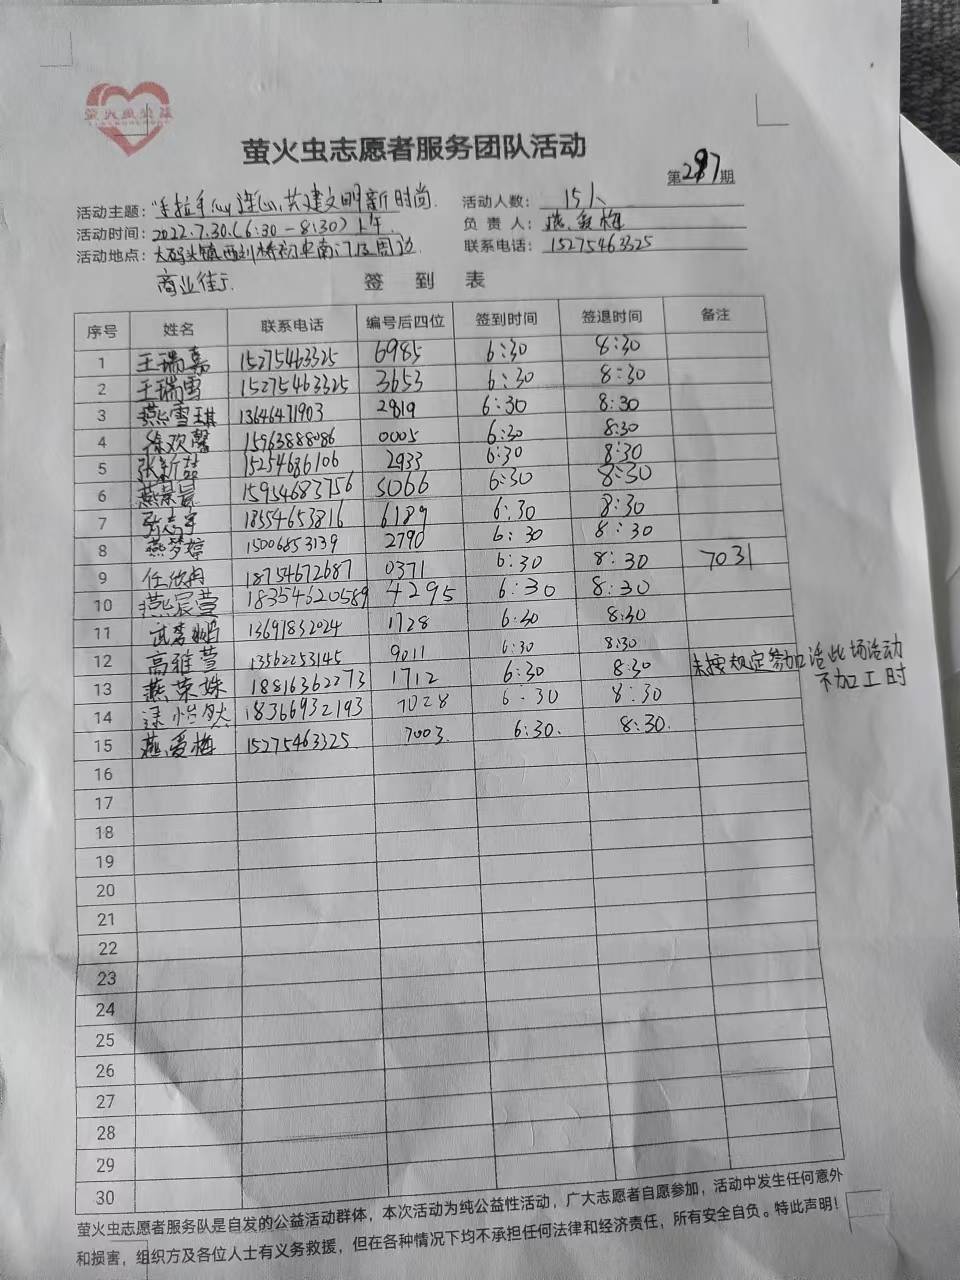 萤火虫志愿者服务团队活动
第297期
活动主题："手拉手心连心,共建文明新时尚.
活动人数： 15人
活动时间：2022.7.30.(6:30-8:30)上午.
负责人：燕爱梅
活动地点：大码头镇西刘桥初中南门及周边
联系电话：15275463325
商业街.
签到表
序号 姓名 联系电话 编号后四位 签到时间 签退时间 备注
1 王瑞嘉 15275463325 6985 6:30 8:30
2 王瑞雪 15275463325 3653 6:30 8:30
3 燕雪琪 13646471903 2819 6:30 8:30
4 徐欢馨 15963888086 0005 6:30 8:30
5 张新喆 15254686106 2933 6:30 8:30
6 燕景晨 15954683756 5066 6:30 8:30
7 张志宇 18554653816 6189 6:30 8:30
8 燕梦婷 15006853139 2790 6:30 8:30
9 任欣冉 18754672687 0371 6:30 8:30 7031
10 燕宸萱 18354620589 4295 6:30 8:30
11 武 13691832024 1728 6:30 8:30
12 高雅萱 13562253145 9011 6:30 8:30
13 燕荣姝 18816362273 1712 6:30 8:30 未按规定参加活此场活动
不加工时
14 怡然 18366932193 7028 6:30 8:30
15 燕爱梅 15275463325 7003. 6:30. 8:30.
16
17
18
19
20
21
22
23
24
25
26
27
28
29
30
萤火虫志愿者服务队是自发的公益活动群体，本次活动为纯公益性活动，广大志愿者自愿参加，活动中发生任何意外
和损害，组织方及各位人士有义务救援，但在各种情况下均不承担任何法律和经济责任，所有安全自负。特此声明！